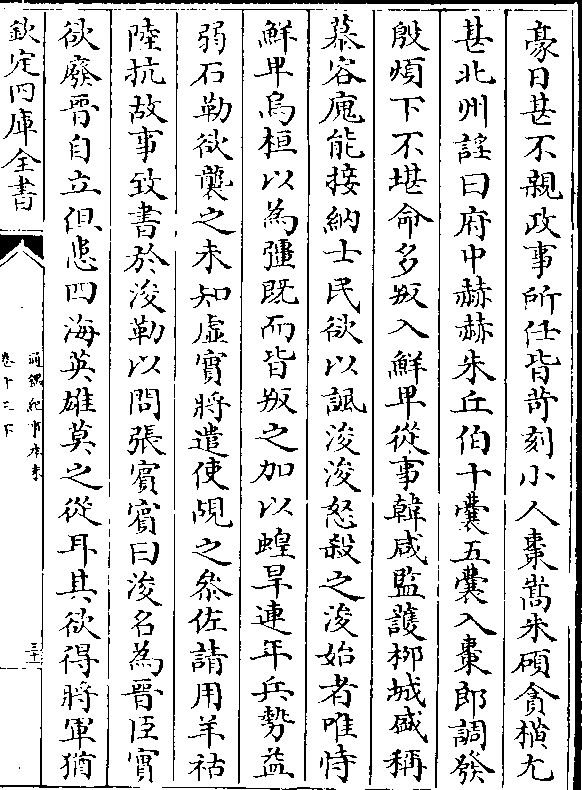 豪日甚不親政事所任皆苛刻小人棗嵩朱碩貪橫尤
甚北州謡曰府中赫赫朱丘伯十囊五囊入棗郎調發
殷煩下不堪命多叛入鮮卑從事韓咸監護栁城盛稱
慕容廆能接納士民欲以諷浚浚怒殺之浚始者唯恃
鮮卑烏桓以為彊既而皆叛之加以蝗旱連年兵勢益
弱石勒欲襲之未知虛實將遣使覘之叅佐請用羊祜
陸抗故事致書於浚勒以問張賓賓曰浚名為晉臣實
欲廢晉自立但患四海英雄莫之從耳其欲得將軍猶
欽定四庫全書
通鑑紀事本末
卷十三下